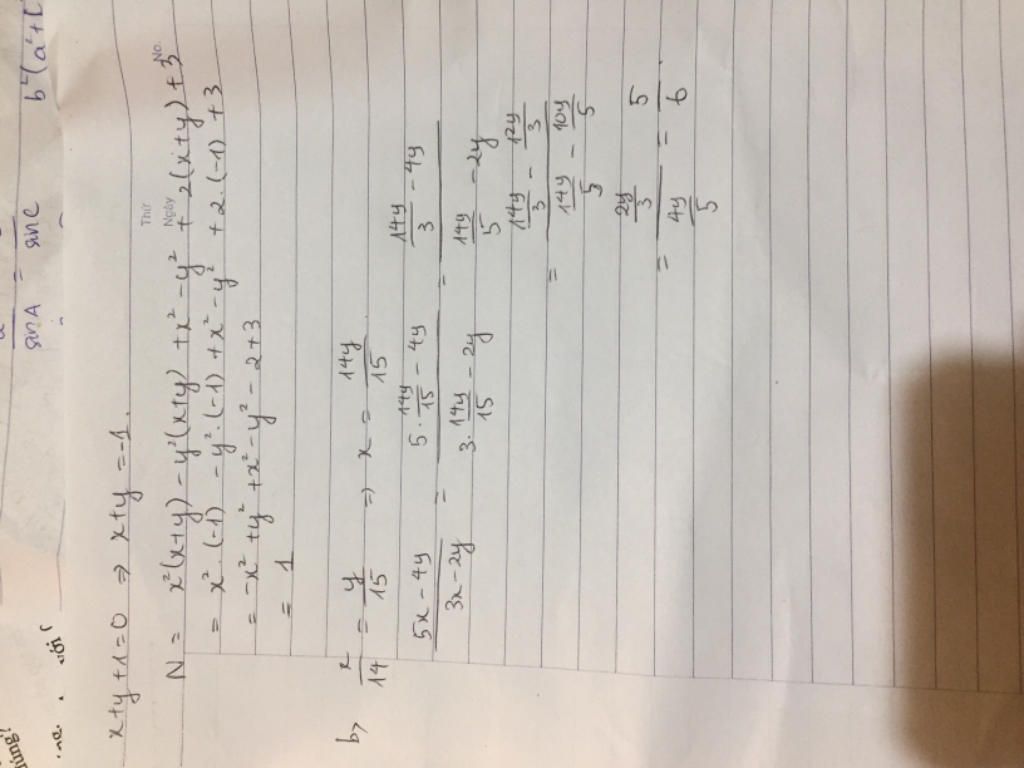 sinA = sinC
b²(a²+
x+y+1=0 ⇒ x+y=-1.
Thứ
Ngày
No.
N = x²(x+y) - y²(x+y) + x² - y² + 2(x+y) + 3
= x².(-1) - y².(-1) + x² - y² + 2.(-1) + 3
= -x² + y² + x² - y² - 2 + 3
= 1
b, x/14 = y/15 ⇒ x = 14y/15
(5x - 4y)/(3x - 2y) = (5.14y/15 - 4y)/(3.14y/15 - 2y) = (14y/3 - 4y)/(14y/5 - 2y)
= (14y/3 - 12y/3)/(14y/5 - 10y/5)
= (2y/3)/(4y/5) = 5/6.